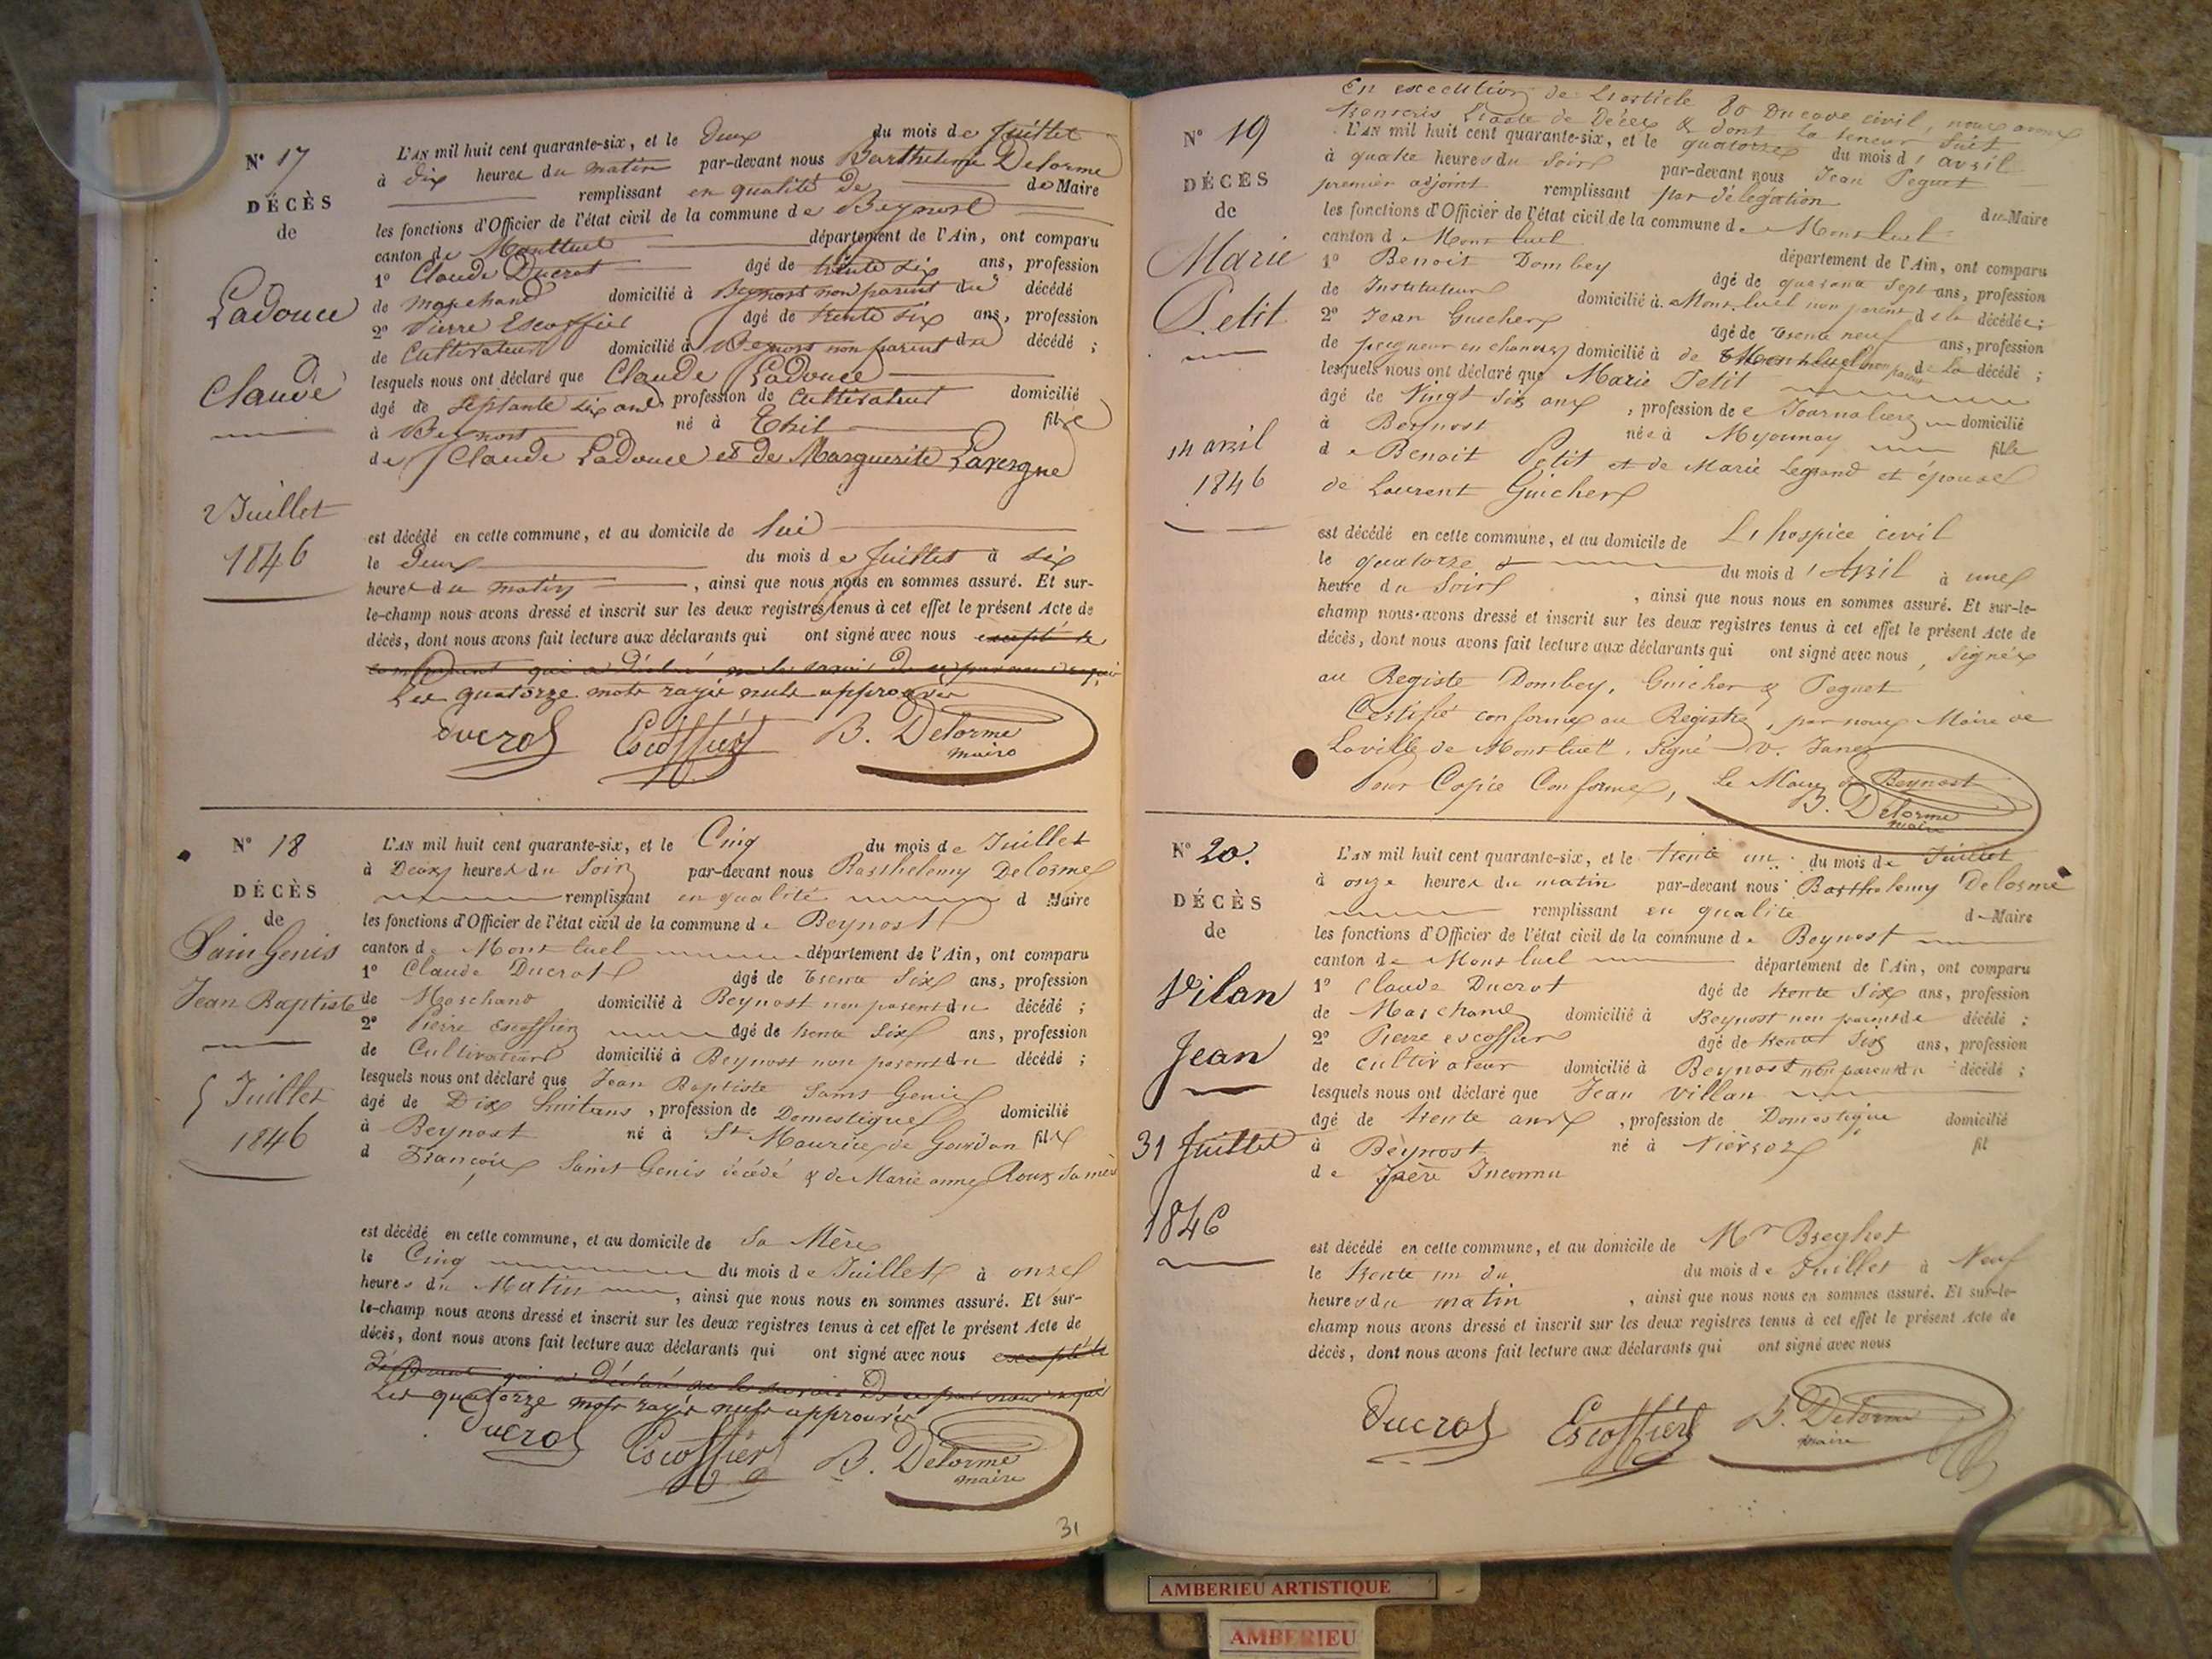 N° 17
DÉCÈS
de
Ladouce
Claude
2 Juillet
1846
L'AN mil huit cent quarante-six, et le deux du mois de Juillet
à dix heures du matin par-devant nous Barthelemy Delorme
remplissant en qualité de de Maire
les fonctions d'Officier de l'état civil de la commune de Beynost
canton de Montluel département de l'Ain, ont comparu
1° Claude Ducrot âgé de trente six ans, profession
de marchand domicilié à Beynost non parent du décédé
2° Pierre Escoffier âgé de trente six ans, profession
de Cultivateur domicilié à Beynost non parent du décédé ;
lesquels nous ont déclaré que Claude Ladouce
âgé de Septante six ans profession de Cultivateur domicilié
à Beynost né à Thil fils
de Claude Ladouce et de Marguerite Lavergne
est décédé en cette commune, et au domicile de lui
le Deux du mois de Juillet à six
heures du matin, ainsi que nous nous en sommes assuré. Et sur-
le-champ nous avons dressé et inscrit sur les deux registres tenus à cet effet le présent Acte de
décès, dont nous avons fait lecture aux déclarants qui ont signé avec nous excepté le
comparant qui a déclaré ne le savoir de ce
Les quatorze mots rayés nuls approuvés
Ducrot Escoffier B. Delorme
maire
N° 18
DÉCÈS
de
Sain Genis
Jean Baptiste
5 Juillet
1846
L'AN mil huit cent quarante-six, et le Cinq du mois de Juillet
à Deux heures du Soir par-devant nous Barthelemy Delorme
remplissant en qualité d Maire
les fonctions d'Officier de l'état civil de la commune de Beynost
canton de Montluel département de l'Ain, ont comparu
1° Claude Ducrot âgé de trente Six ans, profession
de Marchand domicilié à Beynost non parent du décédé ;
2° Pierre escoffier âgé de trente Six ans, profession
de Cultivateur domicilié à Beynost non parent du décédé ;
lesquels nous ont déclaré que Jean Baptiste Saint Genis
âgé de Dix huit ans, profession de Domestique domicilié
à Beynost né à St Maurice de Gourdan fils
d François Saint Genis décédé & de Marie anne Roux sa mère
est décédé en cette commune, et au domicile de Sa Mère
le Cinq du mois de Juillet à onze
heures du Matin, ainsi que nous nous en sommes assuré. Et sur-
le-champ nous avons dressé et inscrit sur les deux registres tenus à cet effet le présent Acte de
décès, dont nous avons fait lecture aux déclarants qui ont signé avec nous excepté le
qui a Déclaré ne le savoir De ce
Les quatorze mots rayés nuls approuvés
Ducrot Escoffier B. Delorme
maire
31
En execution de L'article 80 Du code civil, nous avons
transcris L'acte de Décès & dont la teneur Suit
N° 19
DÉCÈS
de
Marie
Petit
14 avril
1846
L'AN mil huit cent quarante-six, et le quatorze du mois d'avril
à quatre heures du Soir par-devant nous Jean Peguet
premier adjoint remplissant par délégation du Maire
les fonctions d'Officier de l'état civil de la commune de Montluel
canton de Montluel département de l'Ain, ont comparu
1° Benoit Dombey âgé de quarante Sept ans, profession
de Instituteur domicilié à Montluel non parent de la décédée ;
2° Jean Guicher âgé de trente neuf ans, profession
de peigneur en chanvre domicilié à de Montluel non parent de La décédé ;
lesquels nous ont déclaré que Marie Petit
âgé de Vingt Six ans, profession de Journaliere domicilié
à Beynost née à Myonnay fille
de Benoit Petit et de Marie Legrand et épouse
de Laurent Guicher
est décédé en cette commune, et au domicile de L'hospice civil
le quatorze du mois d'Avril à une
heure du Soir, ainsi que nous nous en sommes assuré. Et sur-le-
champ nous avons dressé et inscrit sur les deux registres tenus à cet effet le présent Acte de
décès, dont nous avons fait lecture aux déclarants qui ont signé avec nous, Signés
au Registe Dombey, Guicher & Peguet
Certifié conforme au Registre, par nous Maire de
La ville de Montluel. Signé V. Jane
Pour Copie Conforme, Le Maire de Beynost
B. Delorme
maire
N° 20.
DÉCÈS
de
Vilan
Jean
31 Juillet
1846
L'AN mil huit cent quarante-six, et le trente un du mois de Juillet
à onze heures du matin par-devant nous Barthelemy Delorme
remplissant en qualité d Maire
les fonctions d'Officier de l'état civil de la commune de Beynost
canton de Montluel département de l'Ain, ont comparu
1° Claude Ducrot âgé de trente Six ans, profession
de Marchand domicilié à Beynost non parent de décédé ;
2° Pierre escoffier âgé de trente Six ans, profession
de cultivateur domicilié à Beynost non parent du décédé ;
lesquels nous ont déclaré que Jean Villan
âgé de trente ans, profession de Domestique domicilié
à Beynost né à fil
de père Inconnu
est décédé en cette commune, et au domicile de Mr Breghot
le trente un du du mois de Juillet à Neuf
heures du matin, ainsi que nous nous en sommes assuré. Et sur-le-
champ nous avons dressé et inscrit sur les deux registres tenus à cet effet le présent Acte de
décès, dont nous avons fait lecture aux déclarants qui ont signé avec nous
Ducrot Escoffier B. Delorme
maire
AMBERIEU ARTISTIQUE
AMBERIEU